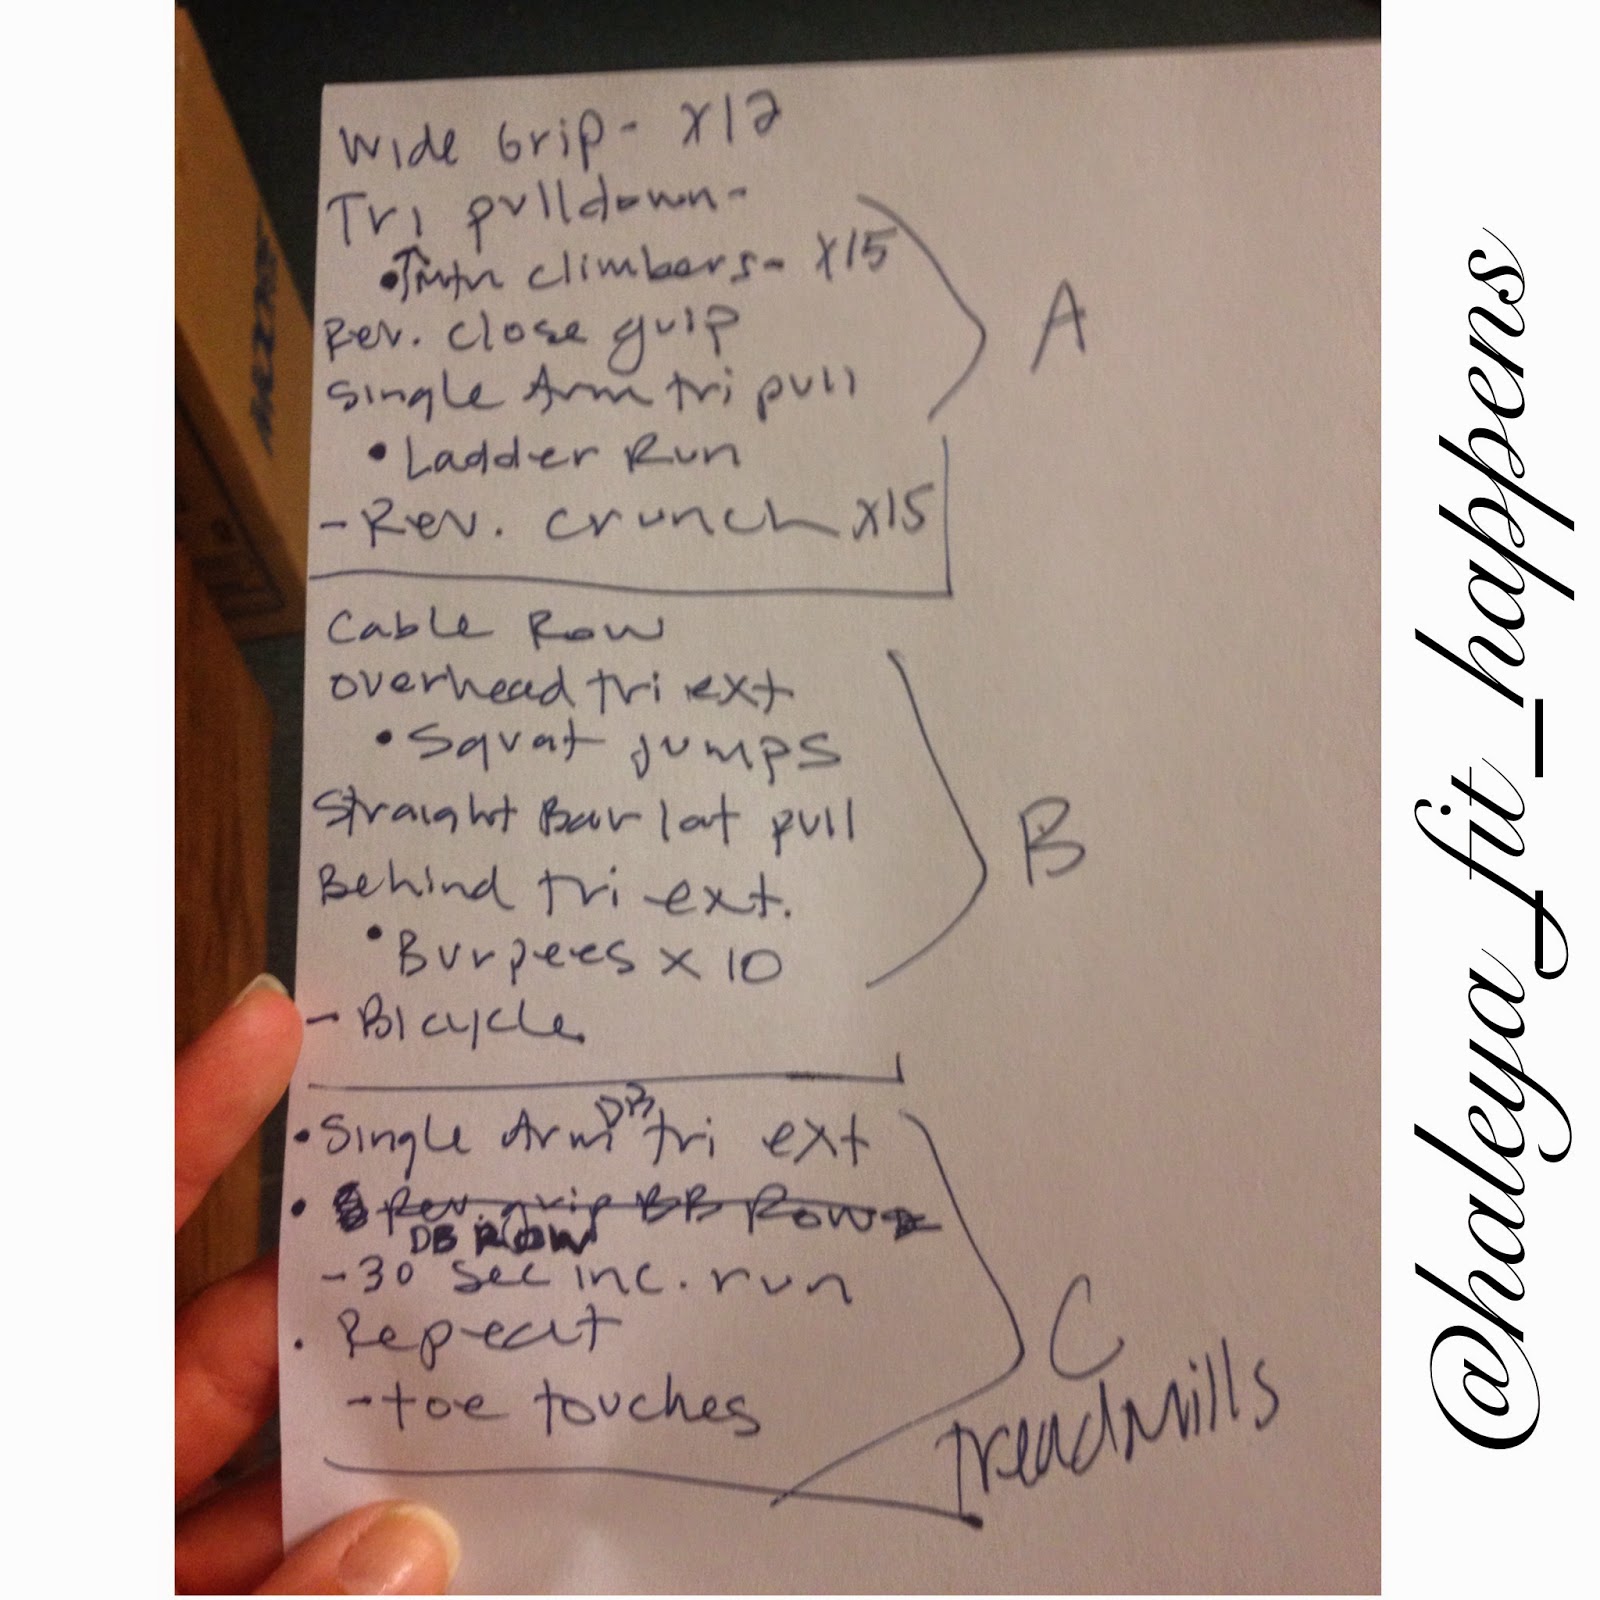 Wide Grip - x12
Tri pulldown -
• Mtn climbers - x15
Rev. close grip
Single Arm tri pull
• Ladder Run
- Rev. crunch x15
A
Cable Row
overhead tri ext
• Squat jumps
Straight Bar lat pull
Behind tri ext.
• Burpees x 10
- Bicycle
B
• Single Arm DB tri ext
• Rev. grip BB Row
DB Row
- 30 sec inc. run
• Repeat
- toe touches
C
Treadmills
@haleya_fit_happens